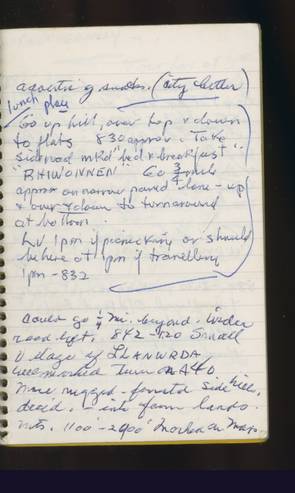 (city letter)
lunch place
Go up hill, over top & down
to flats 830 approx. Take
sideroad mkd "bed & breakfast"
"RHIWONNEN" Go 3/4 mile
approx on narrow paved lane - up
& over & down to turnaround
at bottom.
Lv 1pm if picnicking or should
be here at 1pm if travelling
1pm - 832
Could go 1/4 mi. beyond. Wider
road 842 - 120 Small
Village of LLANWRDA
well marked turn on A40.
More rugged - forested side hill,
into farm lands.
1100 - 2900' marked on map.